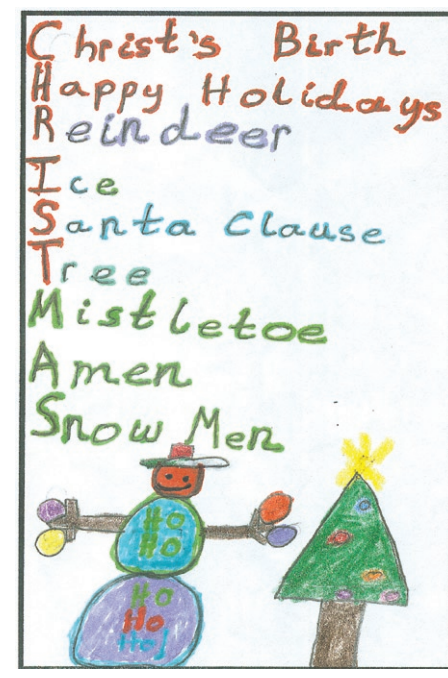 Christ's Birth
Happy Holidays
Reindeer
Ice
Santa Clause
Tree
Mistletoe
Amen
Snow Men
Ho
Ho
Ho
Ho
Ho!